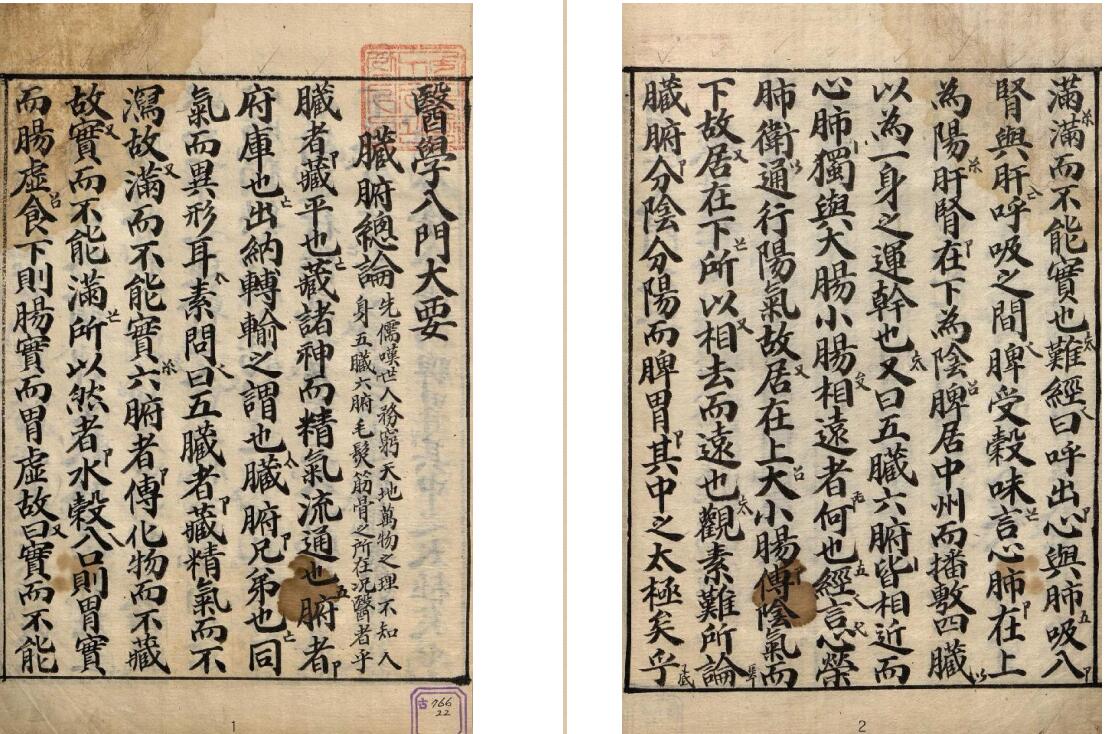 醫學八門大要
臟腑總論
先儒嘆世人務窮天地萬物之理不知人
身五臟六腑毛髮筋骨之所在况醫者乎
臟者藏平也藏諸神而精氣流通也腑者
府庫也出納轉輸之謂也臟腑兄弟也同
氣而異形耳素問曰五臟者藏精氣而不
瀉故滿而不能實六腑者傳化物而不藏
故實而不能滿所以然者水穀入口則胃實
而腸虛食下則腸實而胃虛故曰實而不能
古 766
22
1
滿滿而不能實也難經曰呼出心與肺吸入
腎與肝呼吸之間脾受穀味言心肺在上
為陽肝腎在下為陰脾居中州而播敷四臟
以為一身之運幹也又曰五臟六腑皆相近而
心肺獨與大腸小腸相遠者何也經言心榮
肺衛通行陽氣故居在上大小腸傳陰氣而
下故居在下所以相去而遠也觀素難所論
臟腑分陰分陽而脾胃其中之太極矣乎
2